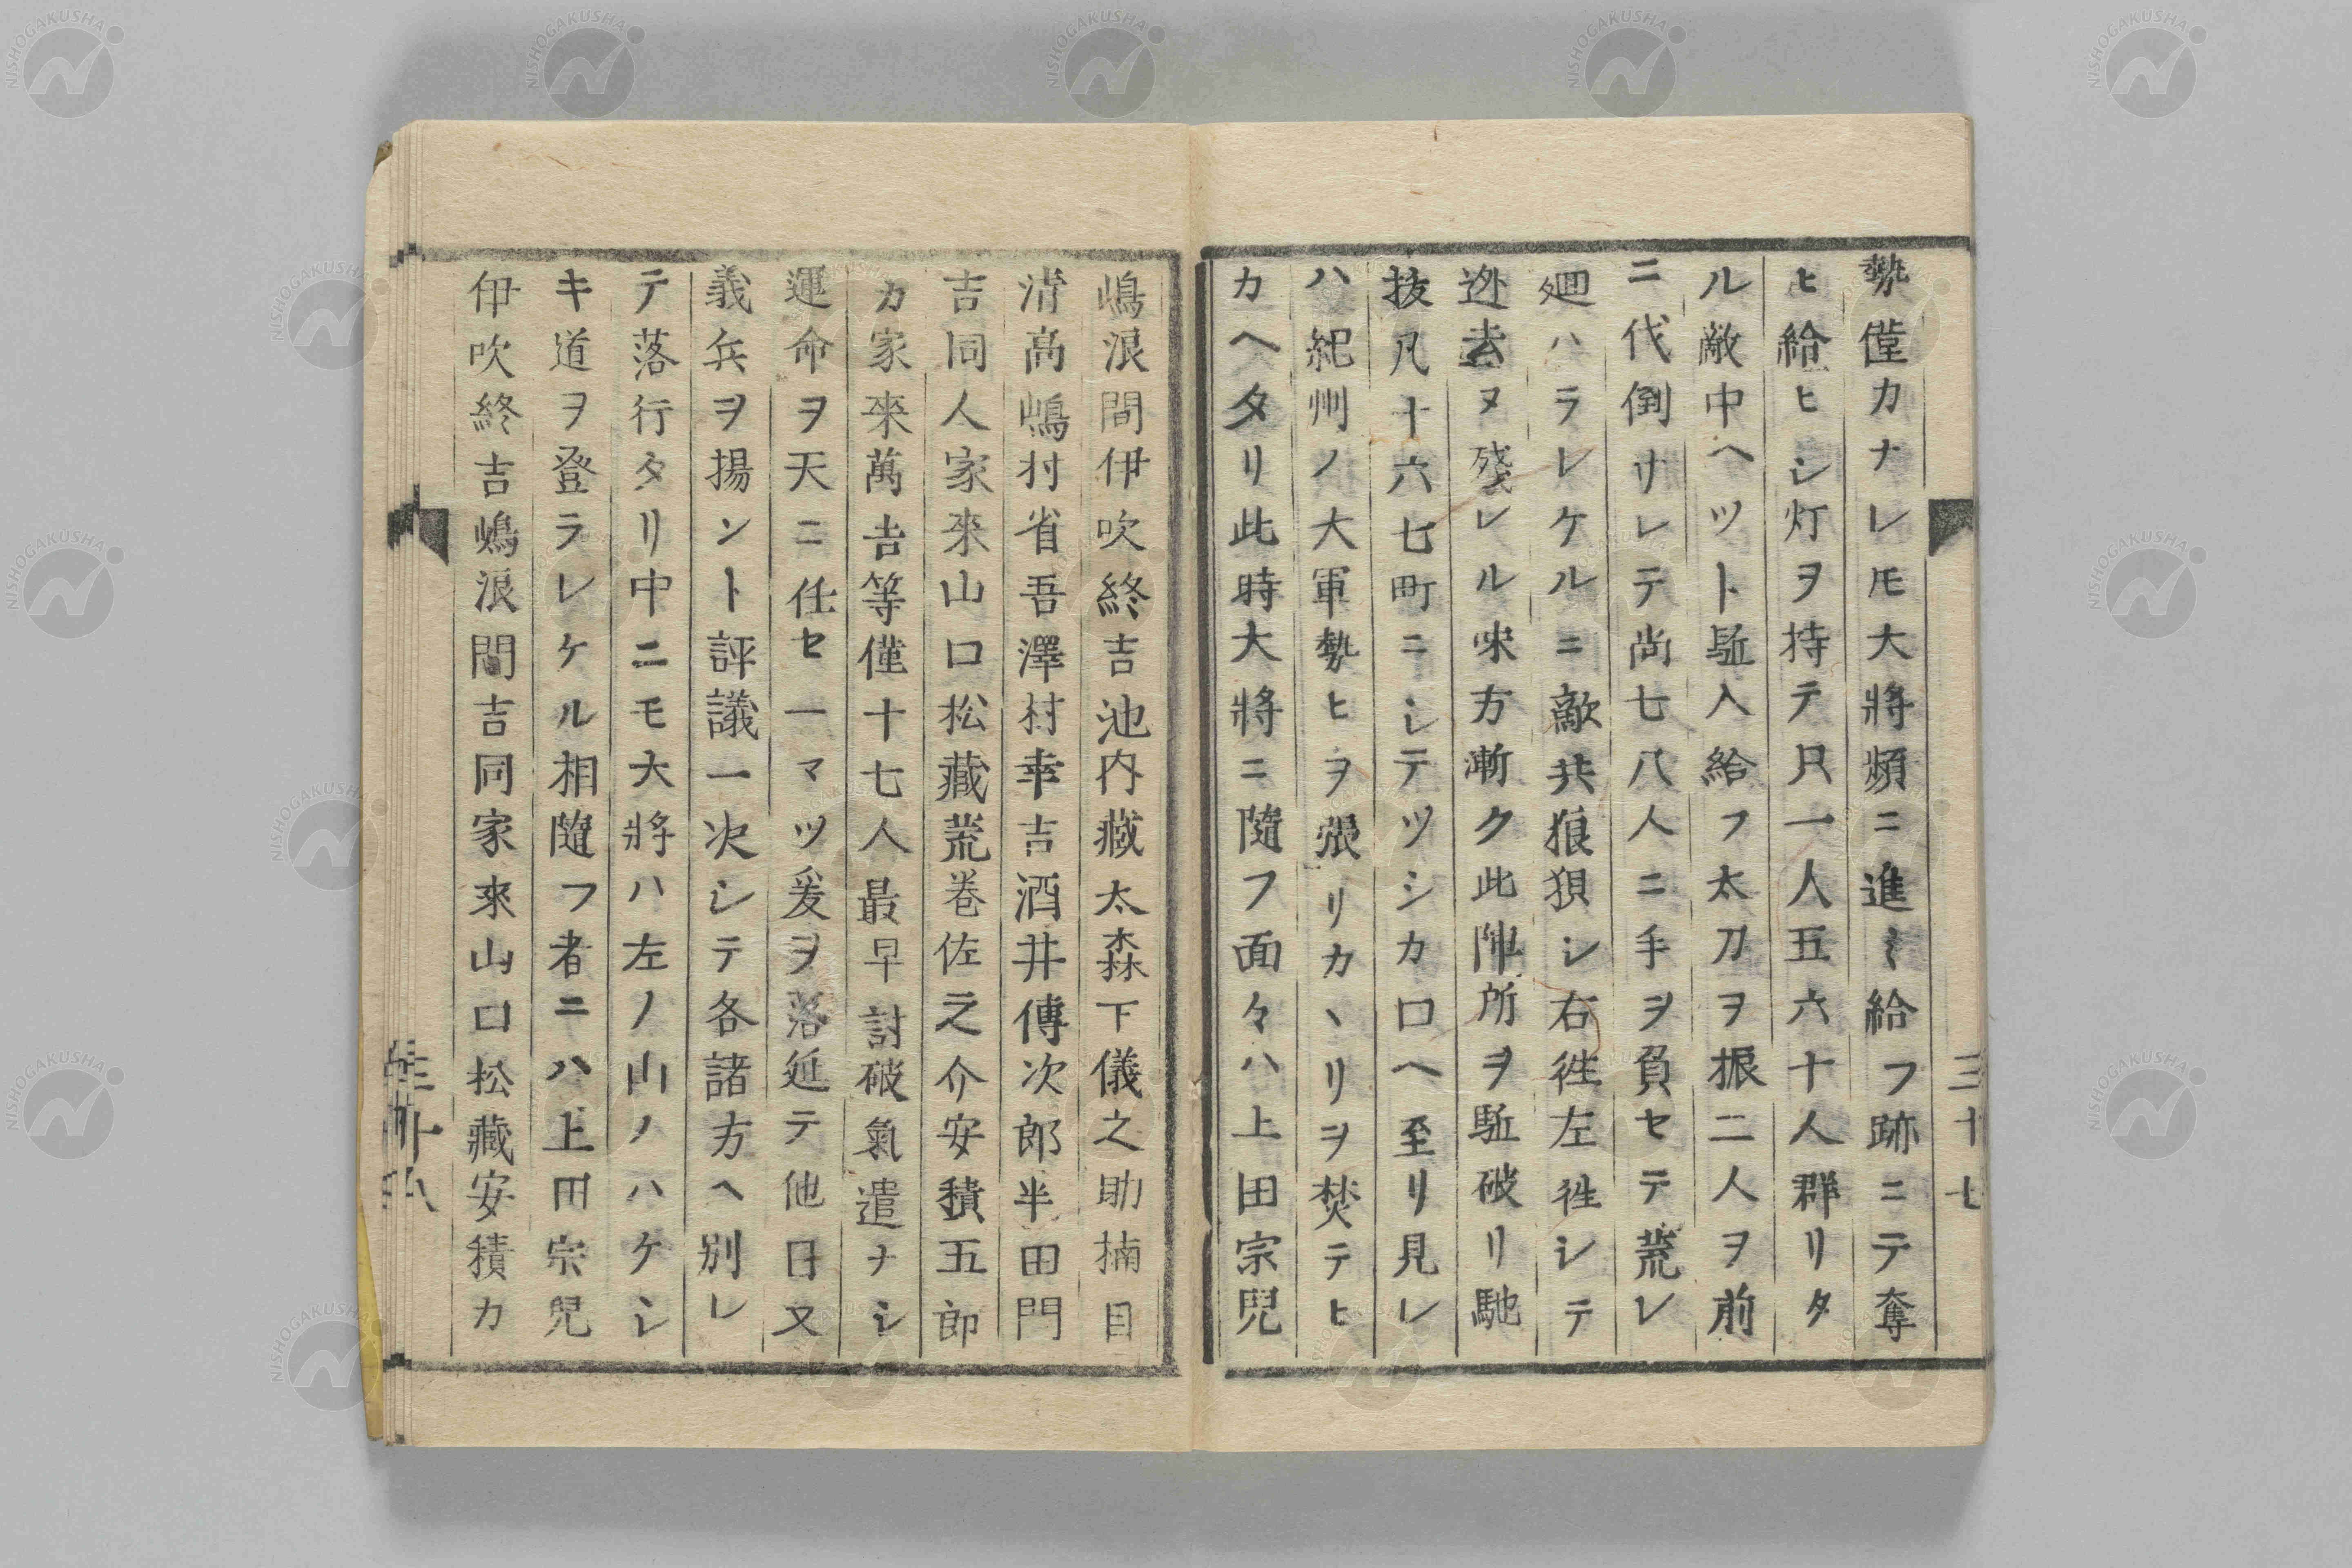 勢僅カナレモ大將頻ニ進ミ給フ跡ニテ奪
ヒ給ヒシ灯ヲ持テ只一人五六十人群リタ
ル敵中ヘツト駈入給フ太刀ヲ振二人ヲ前
ニ伐倒サレテ尚七八人ニ手ヲ負セテ荒レ
廻ハラレケルニ敵共狼狽シ右徃左徃シテ
迯去ヌ殘レル味方漸ク此陣所ヲ駈破リ馳
抜凡十六七町ニシテツシカ口ヘ至リ見レ
ハ紀州ノ大軍勢ヒヲ張リカヽリヲ焚テヒ
カヘタリ此時大將ニ隨フ面々ハ上田宗兒
三十七
嶋浪間伊吹終吉池内藏太森下儀之助楠目
清高嶋村省吾澤村幸吉酒井傳次郎半田門
吉同人家來山口松藏荒卷佐之介安積五郎
カ家來萬吉等僅十七人最早討破氣遣ナシ
運命ヲ天ニ任セ一マツ爰ヲ落延テ他日又
義兵ヲ揚ント評議一次シテ各諸方ヘ別レ
テ落行タリ中ニモ大將ハ左ノ山ノハケシ
キ道ヲ登ラレケル相隨フ者ニハ上田宗兒
伊吹終吉嶋浪間吉同家來山口松藏安積カ
NISHOGAKUSHA